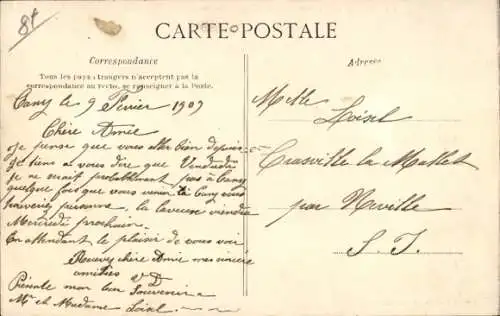 8f
CARTE POSTALE
Correspondance
Tous les pays étrangers n'acceptent pas la
correspondance au recto, se renseigner à la Poste.
Adresse
Cany le 9 Février 1909
Chère Amie
Je pense que vous alle bien depuis
je tiens a vous dire que Vendredi
je ne sairt probablement pas à Cany
quelque fois que vous venir à Cany vous
personne, la laveuse viendra
Mercredi prochain.
En attendant le plaisir de vous voir
Recevez chère Amie mes sincère
amitiés V D
Présente mon bon Souvenir a
Mr et Madame Loisel
Melle Loisel
Crasville la Mallet
par Néville
S. I.